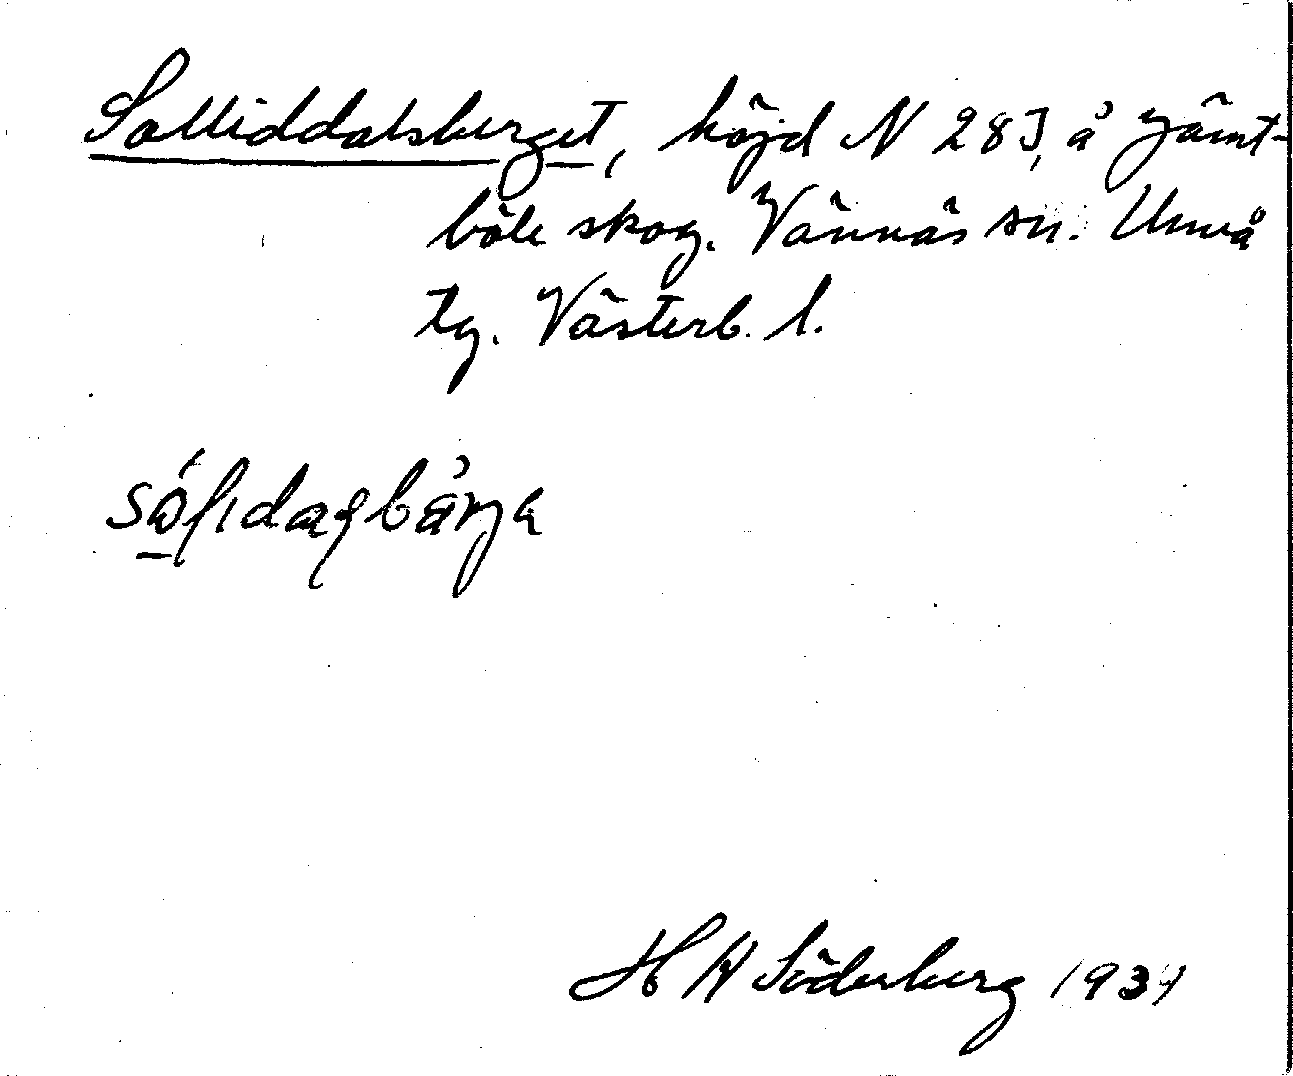 Salliddalsberget, höjd N 283, å Jämt-
böle skog. Vännäs sn. Umeå
tg. Västerb. l.
H A Söderberg 1934